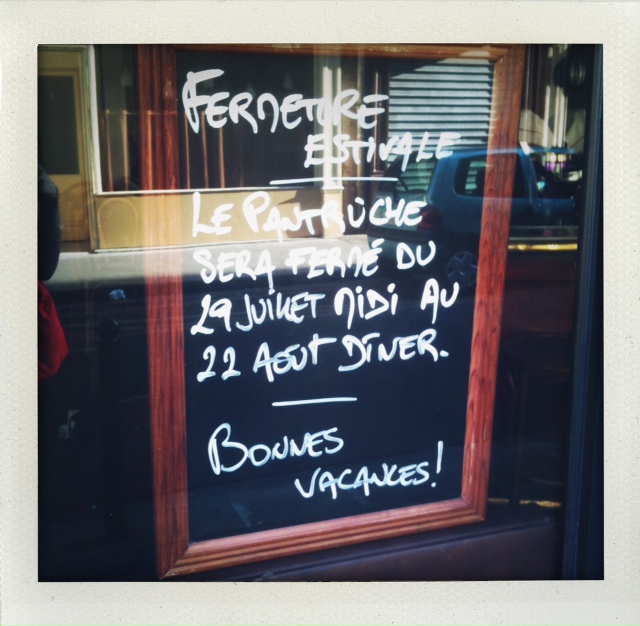 FERMETURE
ESTIVALE
LE PANTRUCHE
SERA FERMÉ DU
29 JUILLET MIDI AU
22 AOÛT DÎNER.
BONNES
VACANCES!